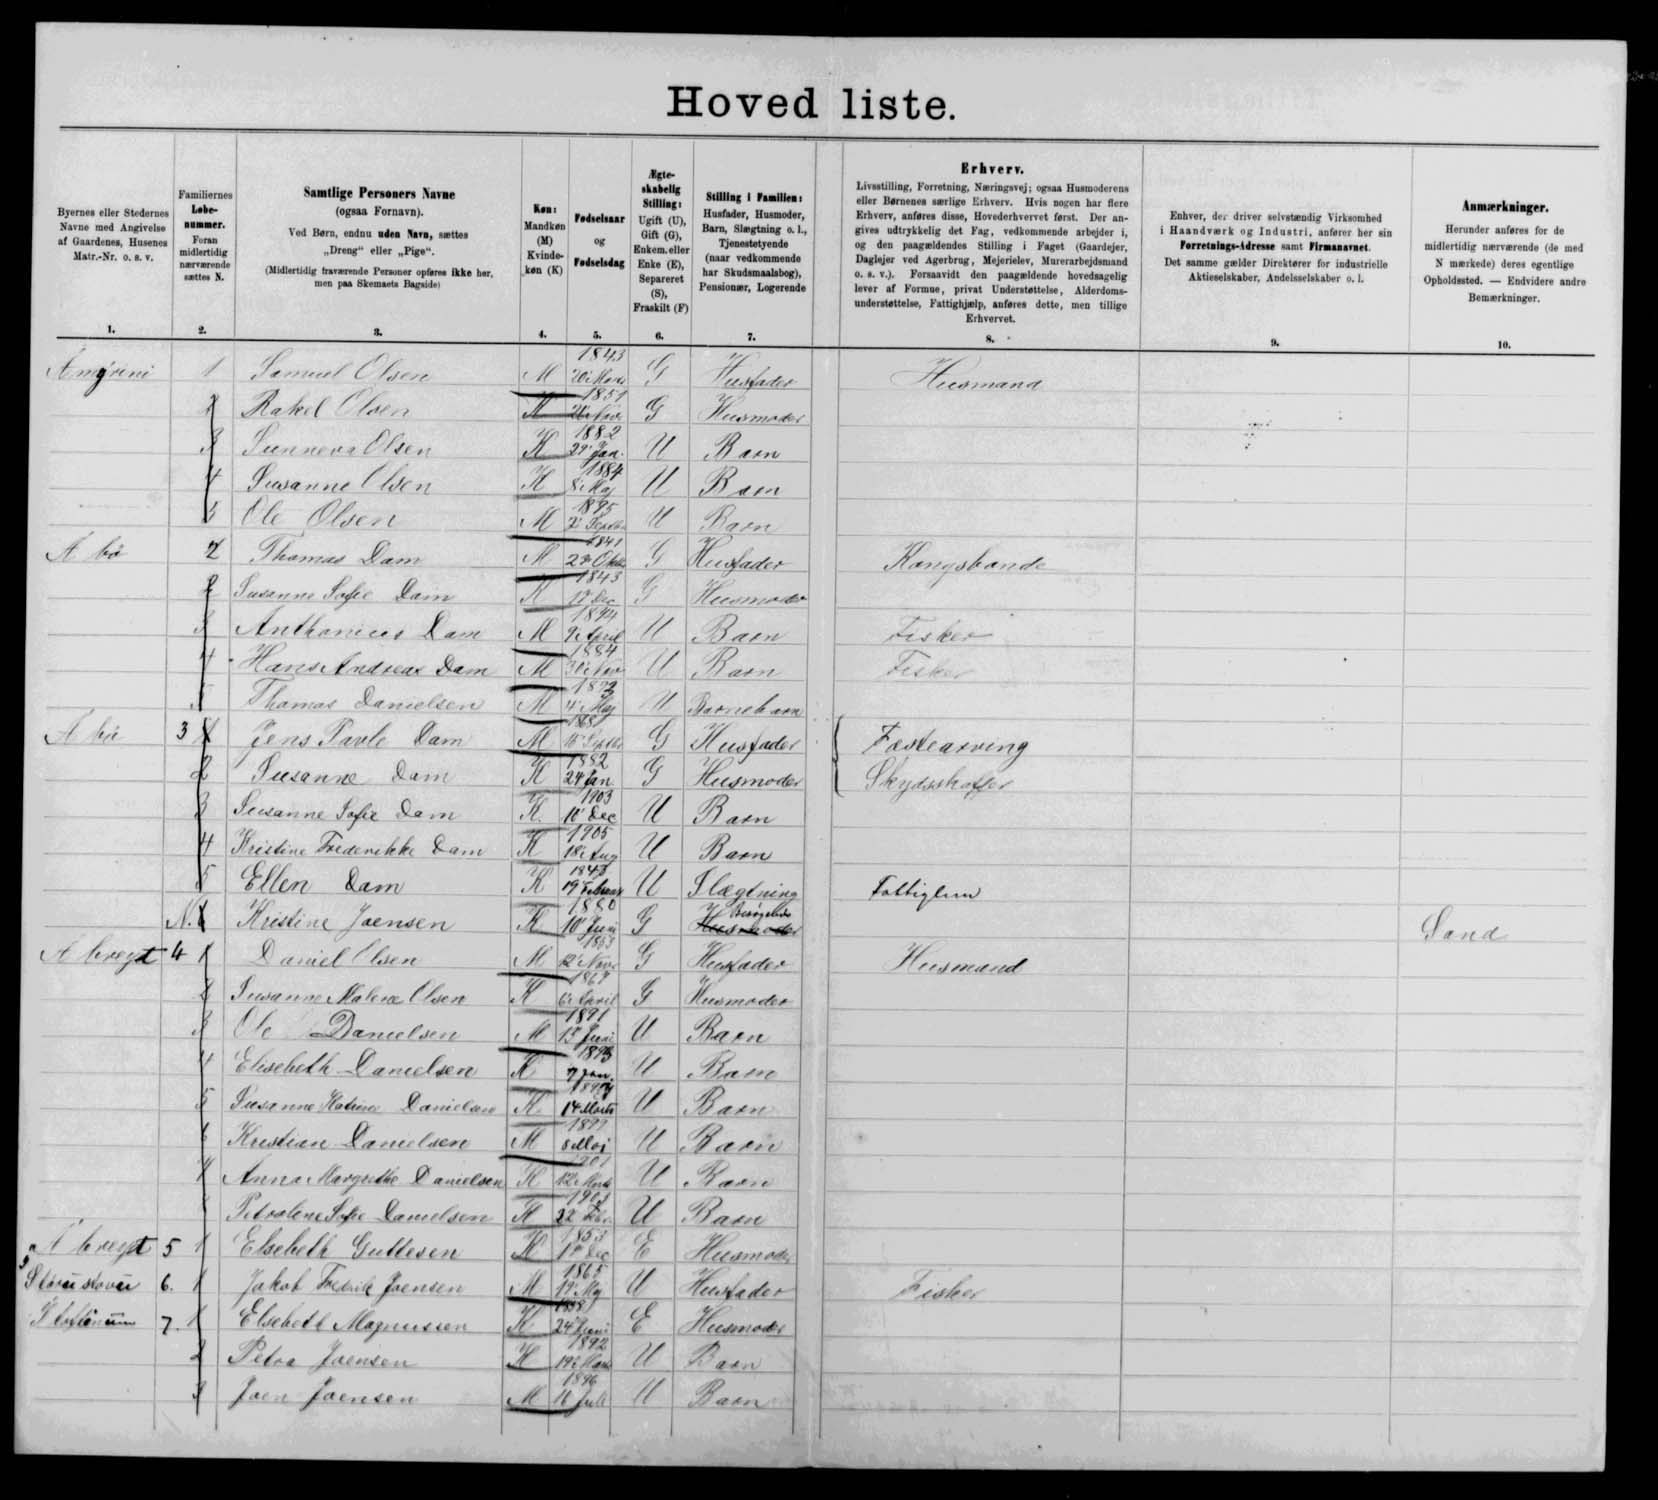 Hoved liste.
Byernes eller Stedernes
Navne med Angivelse
af Gaardenes, Husenes
Matr.-Nr. o. s. v.
1.
Familiernes
Løbe-
nummer.
Foran
midlertidig
nærværende
sættes N.
2.
Samtlige Personers Navne
(ogsaa Fornavn).
Ved Børn, endnu uden Navn, sættes
„Dreng" eller „Pige".
(Midlertidig fraværende Personer opføres ikke her,
men paa Skemaets Bagside)
3.
Køn:
Mandkøn
(M)
Kvinde-
køn (K)
4.
Fødselsaar
og
Fødselsdag
5.
Ægte-
skabelig
Stilling:
Ugift (U),
Gift (G),
Enkem. eller
Enke (E),
Separeret
(S),
Fraskilt (F)
6.
Stilling i Familien:
Husfader, Husmoder,
Barn, Slægtning o. l.,
Tjenestetyende
(naar vedkommende
har Skudsmaalsbog),
Pensionær, Logerende
7.
Erhverv.
Livsstilling, Forretning, Næringsvej; ogsaa Husmoderens
eller Børnenes særlige Erhverv. Hvis nogen har flere
Erhverv, anføres disse, Hovederhvervet først. Der an-
gives udtrykkelig det Fag, vedkommende arbejder i,
og den paagældendes Stilling i Faget (Gaardejer,
Daglejer ved Agerbrug, Mejerielev, Murerarbejdsmand
o. s. v.). Forsaavidt den paagældende hovedsagelig
lever af Formue, privat Understøttelse, Alderdoms-
understøttelse, Fattighjælp, anføres dette, men tillige
Erhvervet.
8.
Enhver, der driver selvstændig Virksomhed
i Haandværk og Industri, anfører her sin
Forretnings-Adresse samt Firmanavnet.
Det samme gælder Direktører for industrielle
Aktieselskaber, Andelsselskaber o. l.
9.
Anmærkninger.
Herunder anføres for de
midlertidig nærværende (de med
N mærkede) deres egentlige
Opholdssted. — Endvidere andre
Bemærkninger.
10.
1 Samuel Olsen M 1843 G Husfader Husmand
2 Rakel Olsen K 1851 G Husmoder
3 Sunneva Olsen K 1882 29' Jan. U Barn
4 Susanne Olsen K 1884 8' Maj U Barn
5 Ole Olsen M 1895 U Barn
2 Thomas Dam M 1841 G Husfader Kongsbonde
2 Susanne Sofie Dam K 1843 Dec G Husmoder
3 Anthonius Dam M 9' April U Barn Fisker
4 Hans Andreas Dam M 1884 30' Nov U Barn Fisker
5 Thomas Danielsen M 4' Maj U Barnebarn
3 1 Jens Pavle Dam M G Husfader Fæstearving
2 Susanne Dam K 1882 24' Jan G Husmoder Skydsskaffer
3 Susanne Sofie Dam K. 1903 10' Dec U Barn
4 Kristine Frederikke Dam K 1905 18' Aug U Barn
5 Ellen Dam K 19' Februar U Slægtning Fattiglem
N. Kristine Joensen K 1880 10' Juni G Besøgende Sand
4 1 Daniel Olsen M 12' Novr G Husfader Husmand
2 Susanne Malene Olsen K 6' April G Husmoder
3 Ole Danielsen M 1891 Juni U Barn
4 Elisebeth Danielsen K 1893 7 Jan. U Barn
5 Susanne Katrine Danielsen K 14 Marts U Barn
6 Kristian Danielsen M 8 Maj U Barn
Anna Margrethe Danielsen K 1901 U Barn
Petralene Sofie Danielsen K 1903 22 Febr. U Barn
5 1 Elsebeth Guttesen K 1853 Dec E Husmoder
6. 1 Jakob Fredrik Joensen M 1865 19' Maj U Husfader Fisker
7. 1 Elsebeth Magnussen K 24' Juni E Husmoder
2 Petra Joensen K 1892 U Barn
3 Joen Joensen M 1896 Juli U Barn